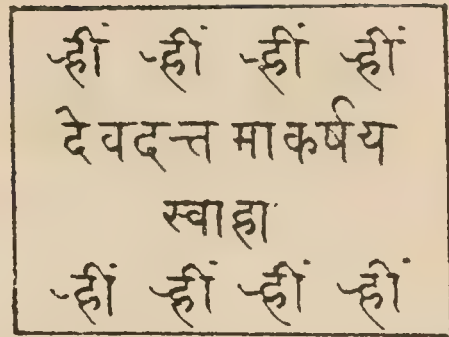 ह्रीं ह्रीं ह्रीं ह्रीं
देवदत्त माकर्षय
स्वाहा
ह्रीं ह्रीं ह्रीं ह्रीं